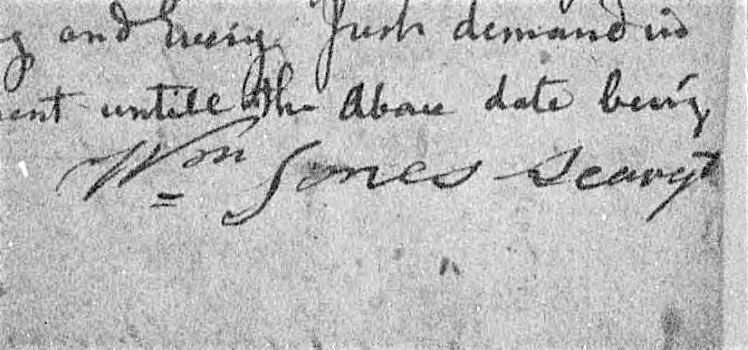 and Every Just demand in
ent untill the above date being
Wm Jones Seargt